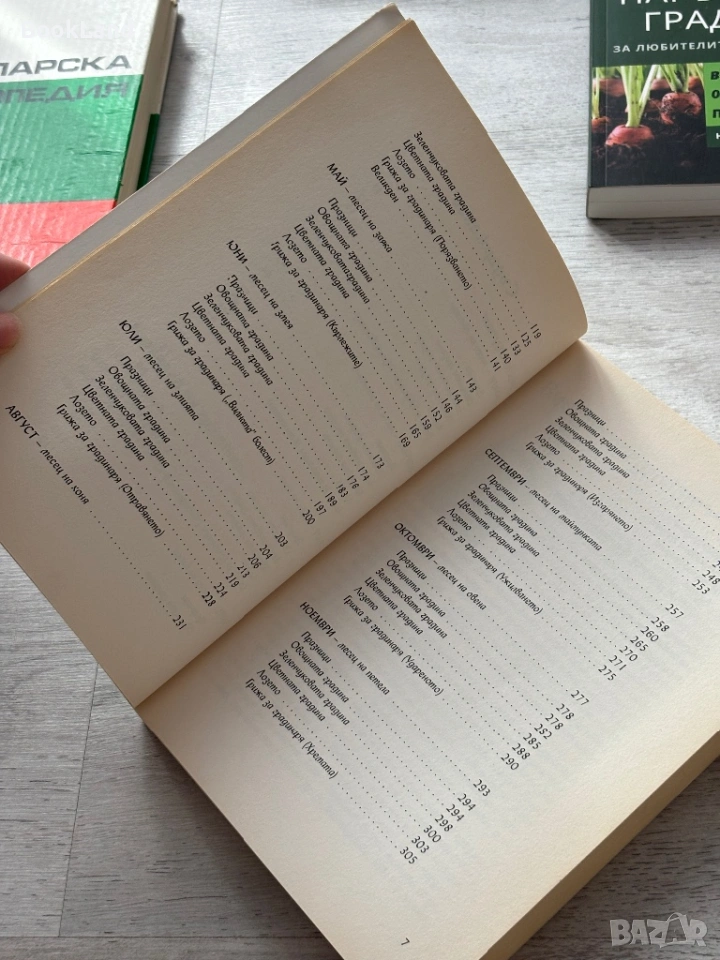 BookL
ЛАРСКА
ПЕДИЯ
НАРЪ
ГРАД
ЗА ЛЮБИТЕЛИТ
В
О
П
Н
Зеленчуковата градина 119
Цветната градина 125
Лозето 133
Грижа за градинаря (Паразването) 140
Великден 141
МАЙ – месец на зайка 143
Празници 144
Овощната градина 146
Зеленчуковатаградина 152
Цветната градина 159
Лозето 165
Грижа за градинаря (Кърлежите) 169
ЮНИ – месец на змея 173
Празници 174
Овощната градина 176
Зеленчуковата градина 183
Цветната градина 189
Лозето 197
Грижа за градинаря („Виената" болест) 200
ЮЛИ – месец на змията 203
Празници 204
Овощната градина 206
Зеленчуковата градина 213
Цветната градина 219
Лозето 224
Грижа за градинаря (Отравянето) 228
АВГУСТ – месец на коня 231
Празници
Овощната градина
Зеленчуковата градина
Цветната градина
Лозето 248
Грижа за градинаря (Изгарянето) 253
СЕПТЕМВРИ – месец на маймунката 257
Празници 258
Овощната градина 260
Зеленчуковата градина 265
Цветната градина 270
Лозето 271
Грижа за градинаря (Ужилването) 275
ОКТОМВРИ – месец на овена 277
Празници 278
Овощната градина 278
Зеленчуковата градина 282
Цветната градина 285
Лозето 288
Грижа за градинаря (Удареното) 290
НОЕМВРИ – месец на петела 293
Празници 294
Овощната градина 294
Зеленчуковата градина 298
Цветната градина 300
Лозето 303
Грижа за градинаря (Хремата) 305
7
BAZAR